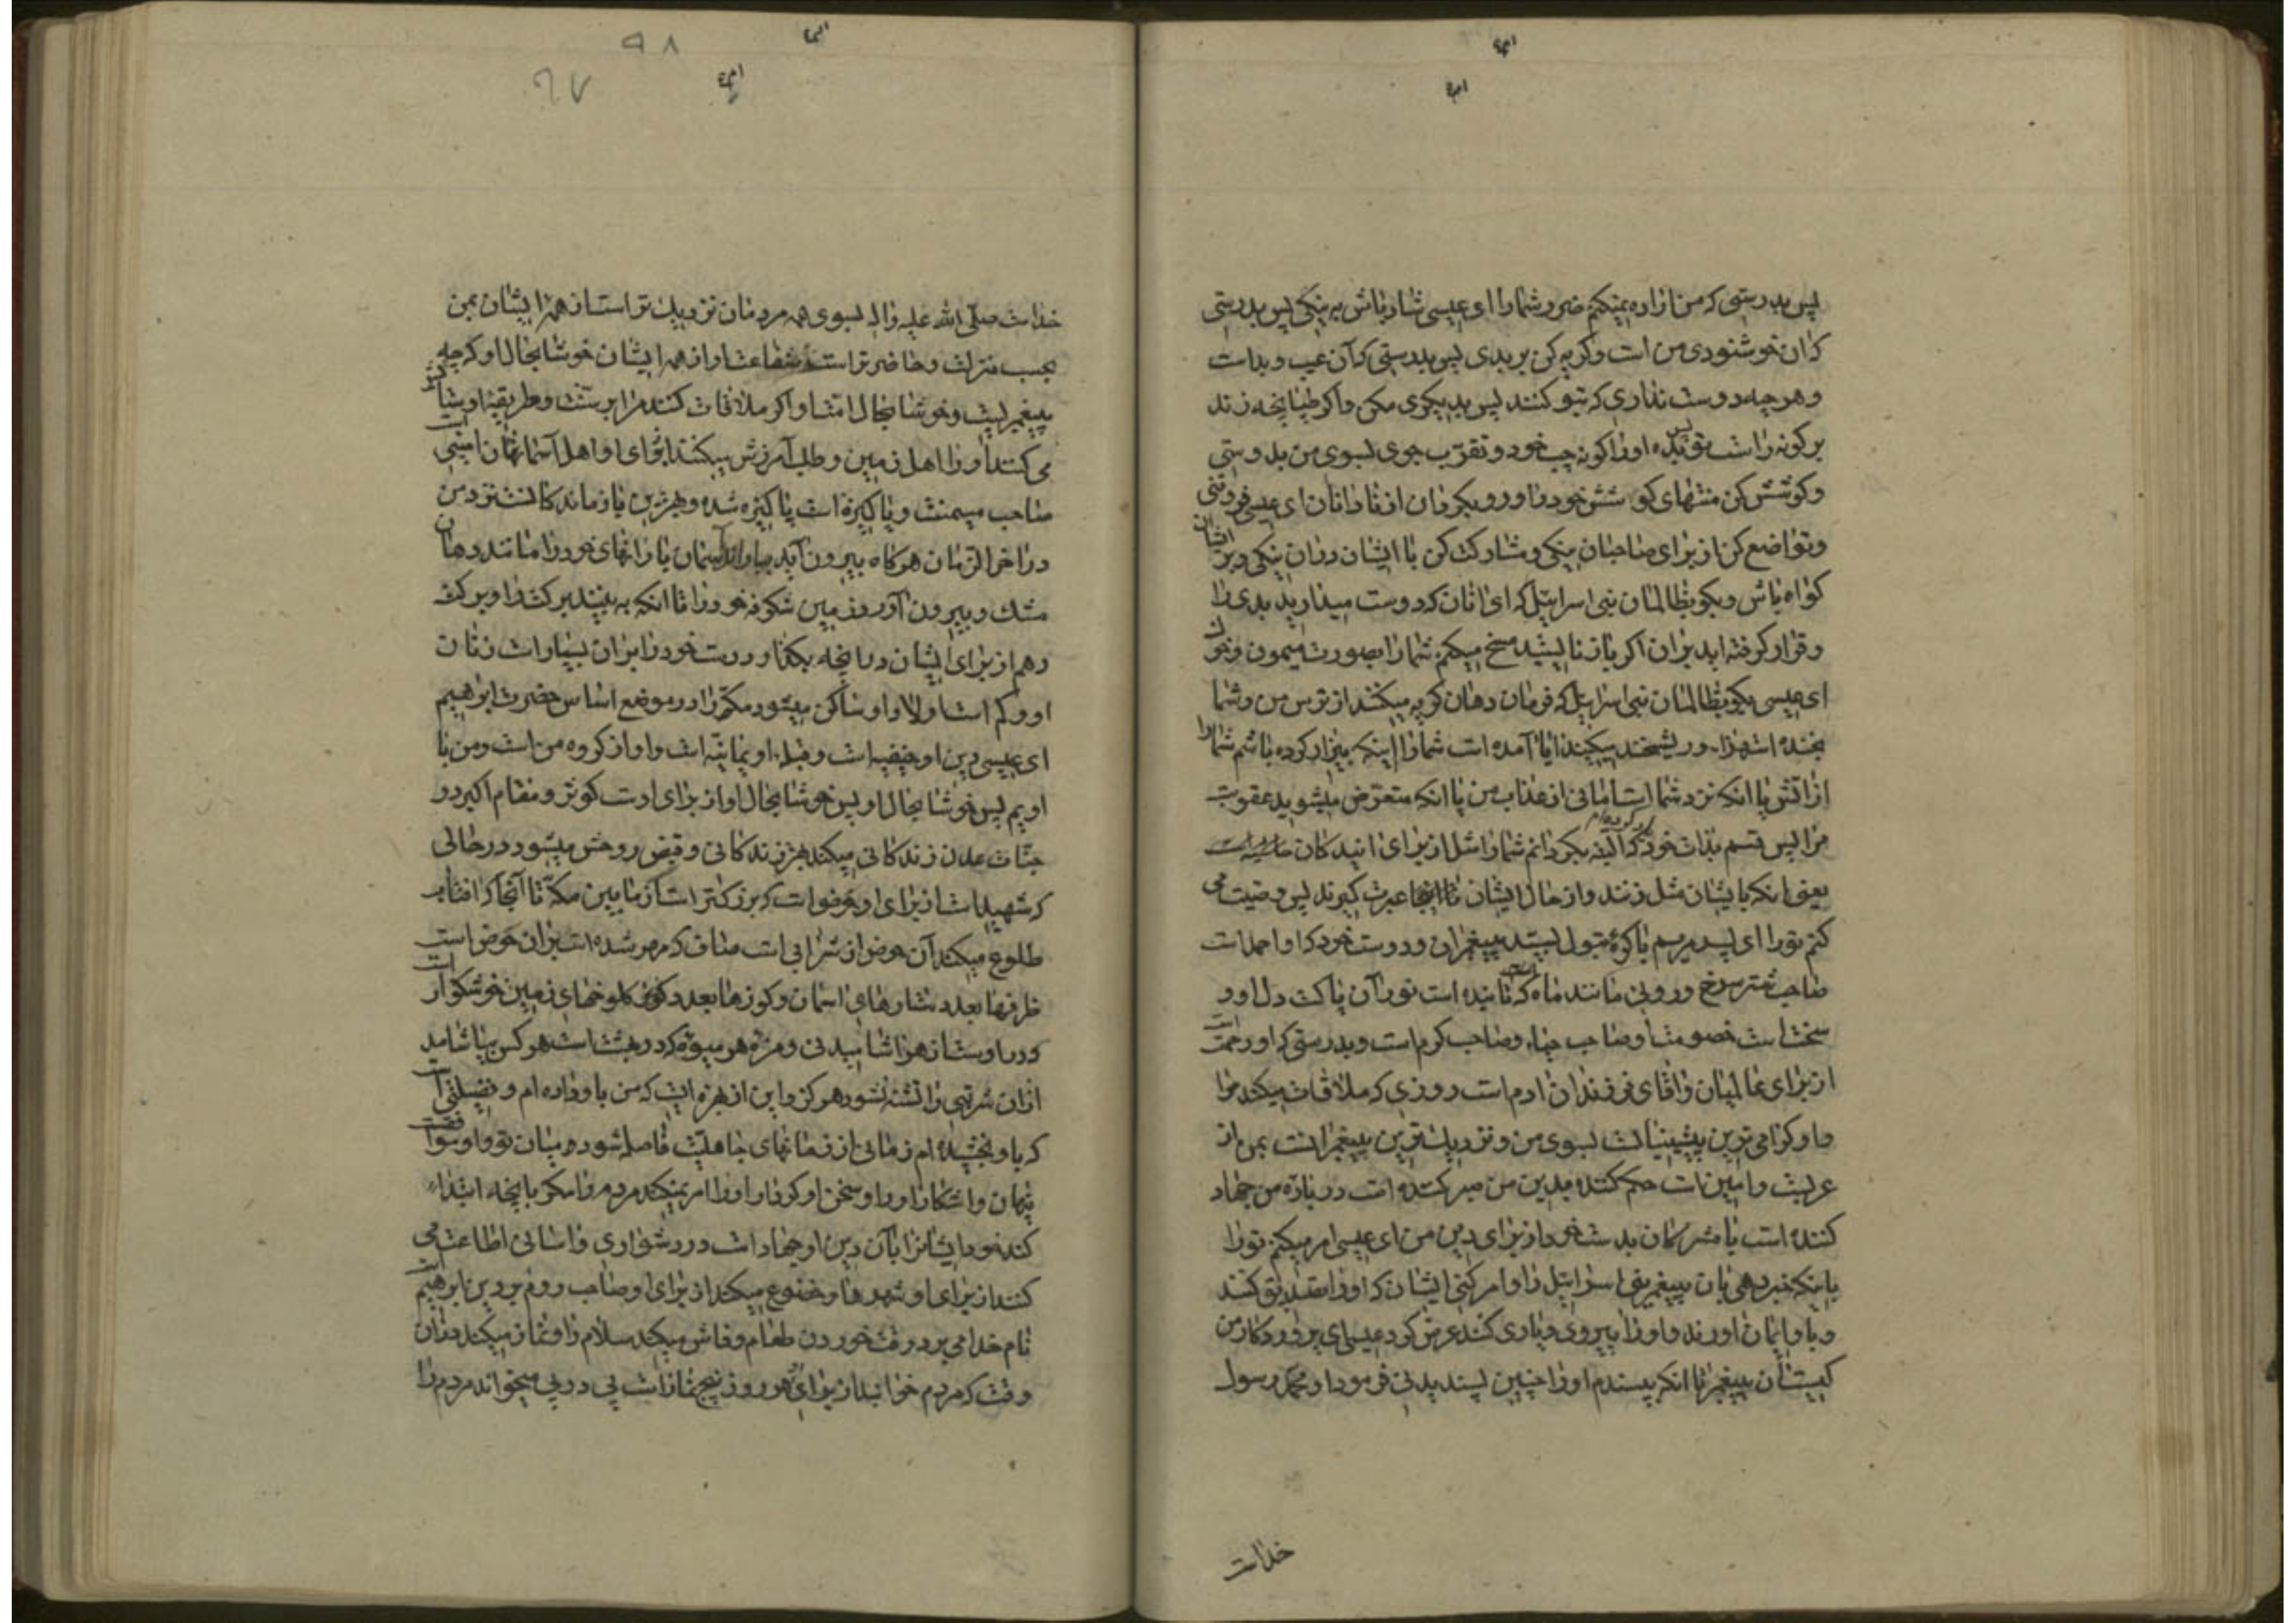 پس بدرستی که من اراده نمیکنم ضرر شما را ای عیسی شاد باش به نیکی پس بدرستی
که آن خوشنودی من است و گریه کن بر بدی پس بدرستی که آن عیب و بد است
و هر چه دوست نداری که بتو کنند پس بدیگری مکن و اگر طپانچه زند
بر گونه راست تو پس بده او را گونه چپ خود و تقرب جوی بسوی من بدوستی
و کوشش کن منتهای کوشش خود را و رو بگردان از نادانان ای عیسی فروتنی
و تواضع کن از برای صاحبان نیکی و مشارکت کن با ایشان در آن نیکی و بر ایشان
گواه باش و بگو بظالمان بنی اسرائیل که ای آنان که دوست میدارید بدی را
و قرار گرفته اید بر آن اگر باز نایستید مسخ میکنم شما را بصورت میمون و خوک
ای عیسی بگو بظالمان بنی اسرائیل که فرمان دهان گریه میکنند از ترس من و شما
بخنده استهزاء و ریشخند میکنید ایا آمده است شما را اینکه بیزار کرده باشم شما را
از آتش یا انکه نزد شما است امانی از عذاب من یا انکه متعرض میشوید عقوبت
مرا پس قسم بذات خود که البته بگردانم شما را مثل از برای ایندکان
یعنی انکه بایشان مثل زنند و از حال ایشان تا آنجا عبرت گیرند پس وصیت می
کنم تو را ای پسر مریم باکره بتول بسید پیغمبران و دوست خود که او احمد است
صاحب شتر سرخ و روئی مانند ماه که تابنده است نور آن پاکت دل او و
سخت است خصومت او صاحب حیاء و صاحب کرم است و بدرستی که او رحمت است
از برای عالمیان و اقای فرزندان ادم است روزی که ملاقات میکند مرا
و او گرامی ترین پیشینیانست بسوی من و نزدیک ترین پیغمبرانست بمن از
عربیست و امین است حکم کننده بدین من صبر کننده است در باره من جهاد
کننده است با مشرکان بدست خود از برای دین من ای عیسی امر میکنم تو را
باینکه خبر دهی بان پیغمبر بنی اسرائیل را و امر کنی ایشان که او را تصدیق کنند
و باو ایمان اورند و او را پیروی و یاری کنند عرض کرد عیسی ای پروردگار من
کیست آن پیغمبر تا انکه بپسندم او را چنین پسندیدنی فرمود او محمد رسول
خداست
۹۸
۹۷
خداست صلی الله علیه و اله بسوی همه مردمان نزدیک تر است از همه ایشان بمن
بحسب منزلت و حاضر تر است شفاعت او از همه ایشان خوشا بحال او که چه
پیغمبریست و خوشا بحال امت او اگر ملاقات کنند مرا بر سنت و طریقه او ستایش
می کنند او را اهل زمین و طلب آمرزش میکنند برای او اهل آسمانها امین است
صاحب میمنت و پاکیزه است پاکیزه شده و بهترین بازماندکانست نزد من
در اخر الزمان هرگاه بیرون آید بباراند آسمان بارانهای خود را مانند دهان
مشک و بیرون آورد زمین شکوفه خود را تا انکه به بینند برکت را و برکت
دهم از برای ایشان در آنچه بگذارد دست خود را بر آن بسیار است زنان
او و کم است اولاد او ساکن میشود مکه را در موضع اساس حضرت ابراهیم
ای عیسی دین او حنیفیه است و قبله او یمانیه است و او از گروه من است و من با
اویم پس خوشا بحال او پس خوشا بحال او از برای اوست کوثر و مقام اکبر در
جنات عدن زندکانی میکند بهتر زندکانی و قبض روحش میشود در حالی
که شهید است از برای او حوضی است که بزرکتر است از مابین مکه تا آنجا که افتاب
طلوع میکند آن حوض از شرابی است صاف که مهر شده است بر آن حوض است
ظرفها بعدد ستارهای اسمان و کوزها بعدد کلوخهای زمین خوشکوار است
و در اوست از هر اشامیدنی و مزه هر میوه که در بهشت است هر کس بیاشامد
از آن شربتی را تشنه نشود هرگز و این از بهره ایست که من باو داده ام و فضیلتی است
که باو بخشیده ام زمانی از زمانهای جاهلیت فاصله شود میان تو و او موافقست
پنهان و اشکار او و او سخن او کردار او را امر نمیکند مردم را مکر بانچه ابتداء
کند خود ایشانرا بآن دین او جهاد است در دشواری و اسانی اطاعت می
کنند از برای او شهرها و خضوع میکند از برای او صاحب روم بر دین ابراهیم است
نام خدا می برد در وقت خوردن طعام و فاش میکند سلام را و نماز میکند در آن
وقت که مردم خوابند از برای او هر روز پنج نماز است پی در پی میخواند مردم را